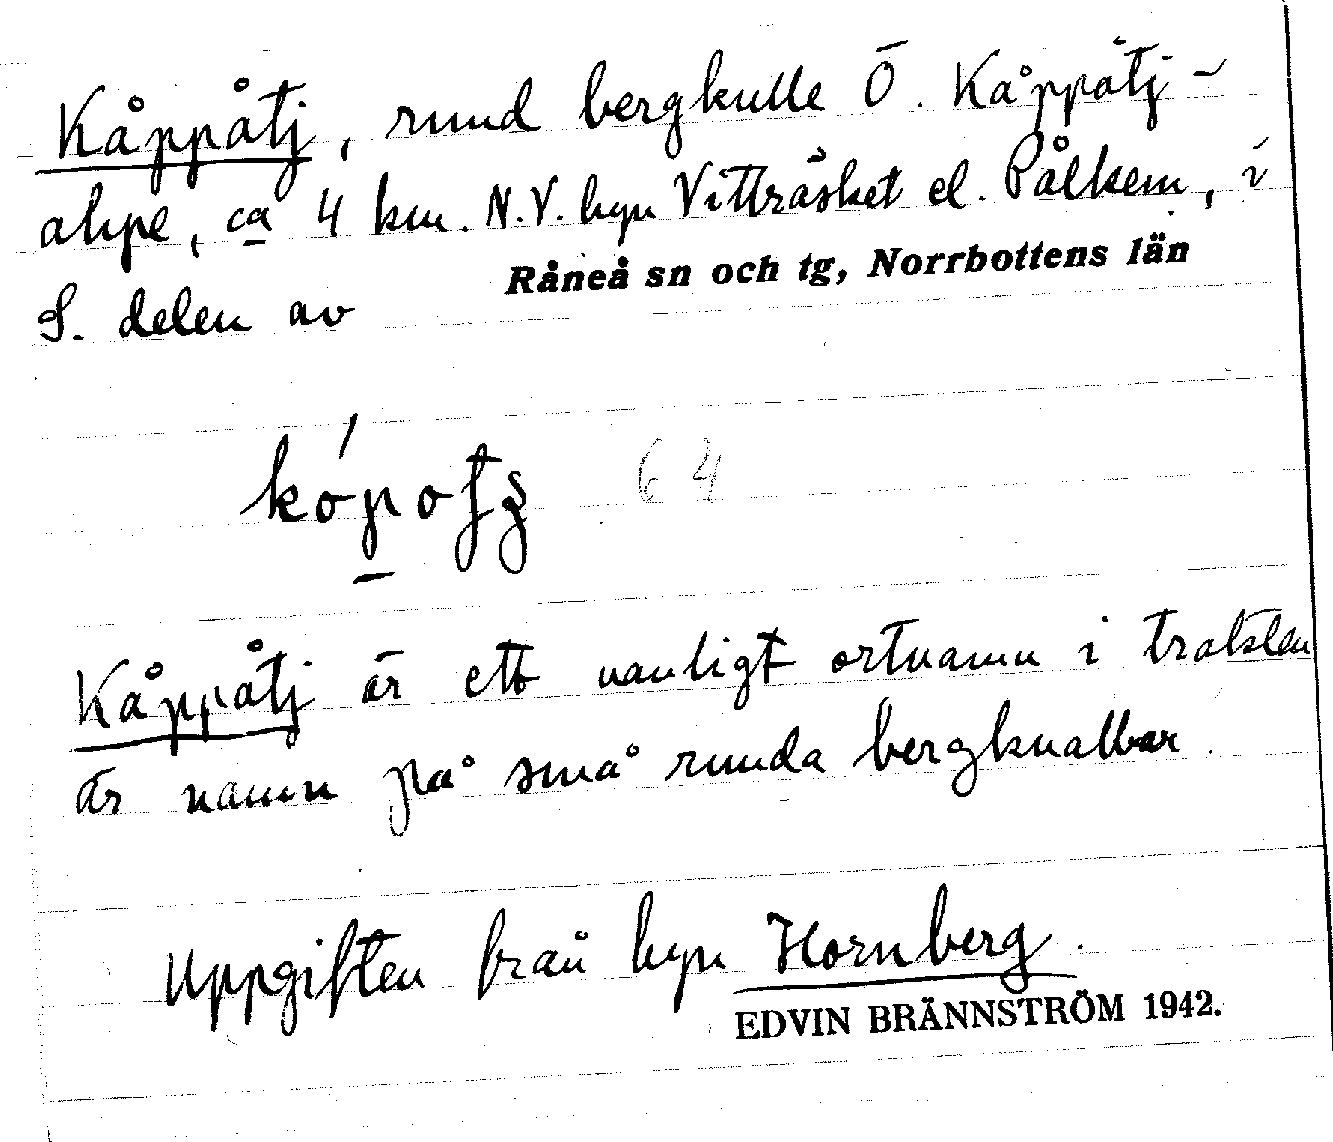 Kåppåtj, rund bergkulle Ö. Kåppåtj-
ahpe, ca 4 km. N.V. byn Vitträsket el. Pålkem, i
Råneå sn och tg, Norrbottens län
S. delen av
64
Kåppåtj är ett vanligt ortnamn i trakten
är namn på små runda bergknallar
Uppgiften från byn Hornberg.
EDVIN BRÄNNSTRÖM 1942.